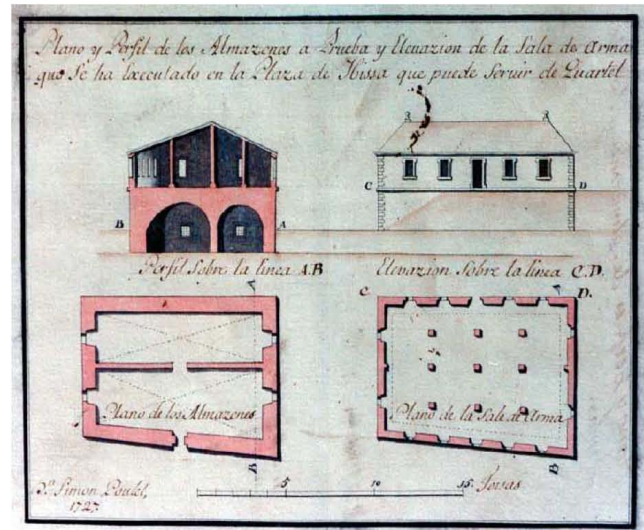 Plano y Perfil de los Almazenes a Prueba y Elevazion de la Sala de Arma
que Se ha Executado en la Plaza de Ibissa que puede Servir de Quartel
B B
C D
B A
Perfil Sobre la linea A.B
Elevazion Sobre la linea C.D.
A C A D.
Plano de los Almazenes
Plano de la Sala de Arma
B B
Dn. Simon Poulet,
1727
5 10 15. Toisas